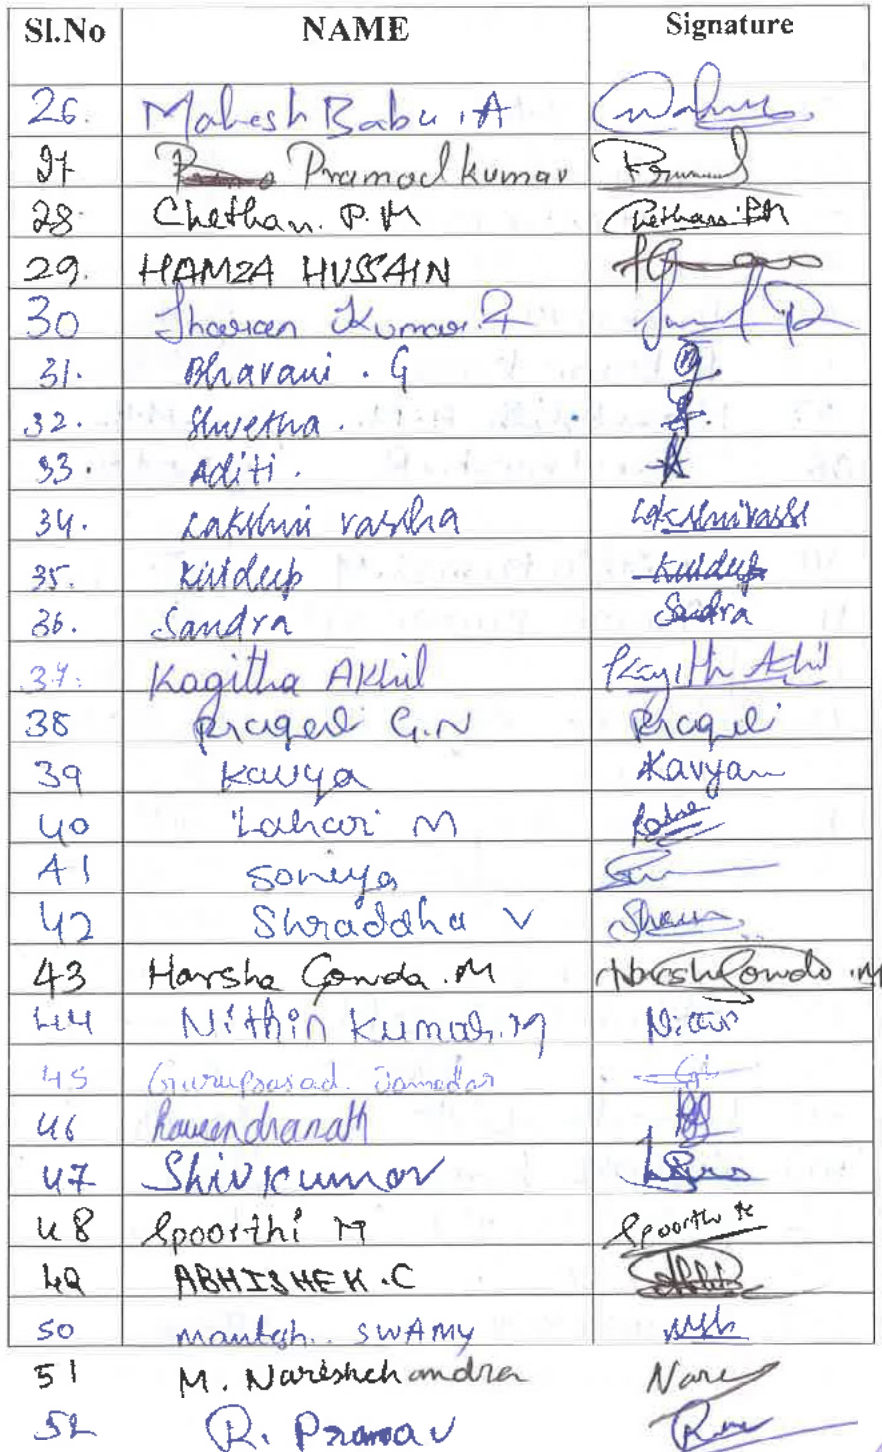 Sl.No NAME Signature
26. Mahesh Babu . A
27 Pramod kumar
28. Chethan. P. M Chethan. P.M
29. HAMZA HUSSAIN
30 Sharan Kumar. R
31. Bhavani . G
32. Shwetha .
33. Aditi .
34. Lakshmi varsha Lakshmivarsh
35. Kuldeep Kuldeep
36. Sandra Sandra
37. Kagitha AKhil Kagith Akhil
38 Pragati G.N Pragati
39 Kavya Kavya
40 Lahari M
41 Soniya
42 Shraddha V
43 Harsha Gowda . M Harsh Gowda . M
44 Nithin Kumar. M
45 Guruprasad. Jamedar
46 Raveendranath
47 Shivkumar
48 Spoorthi M Spoorthi M
49 ABHISHEK . C
50 mantesh.. SWAMY
51 M. Nareshchandra Nare
52 R. Pranav